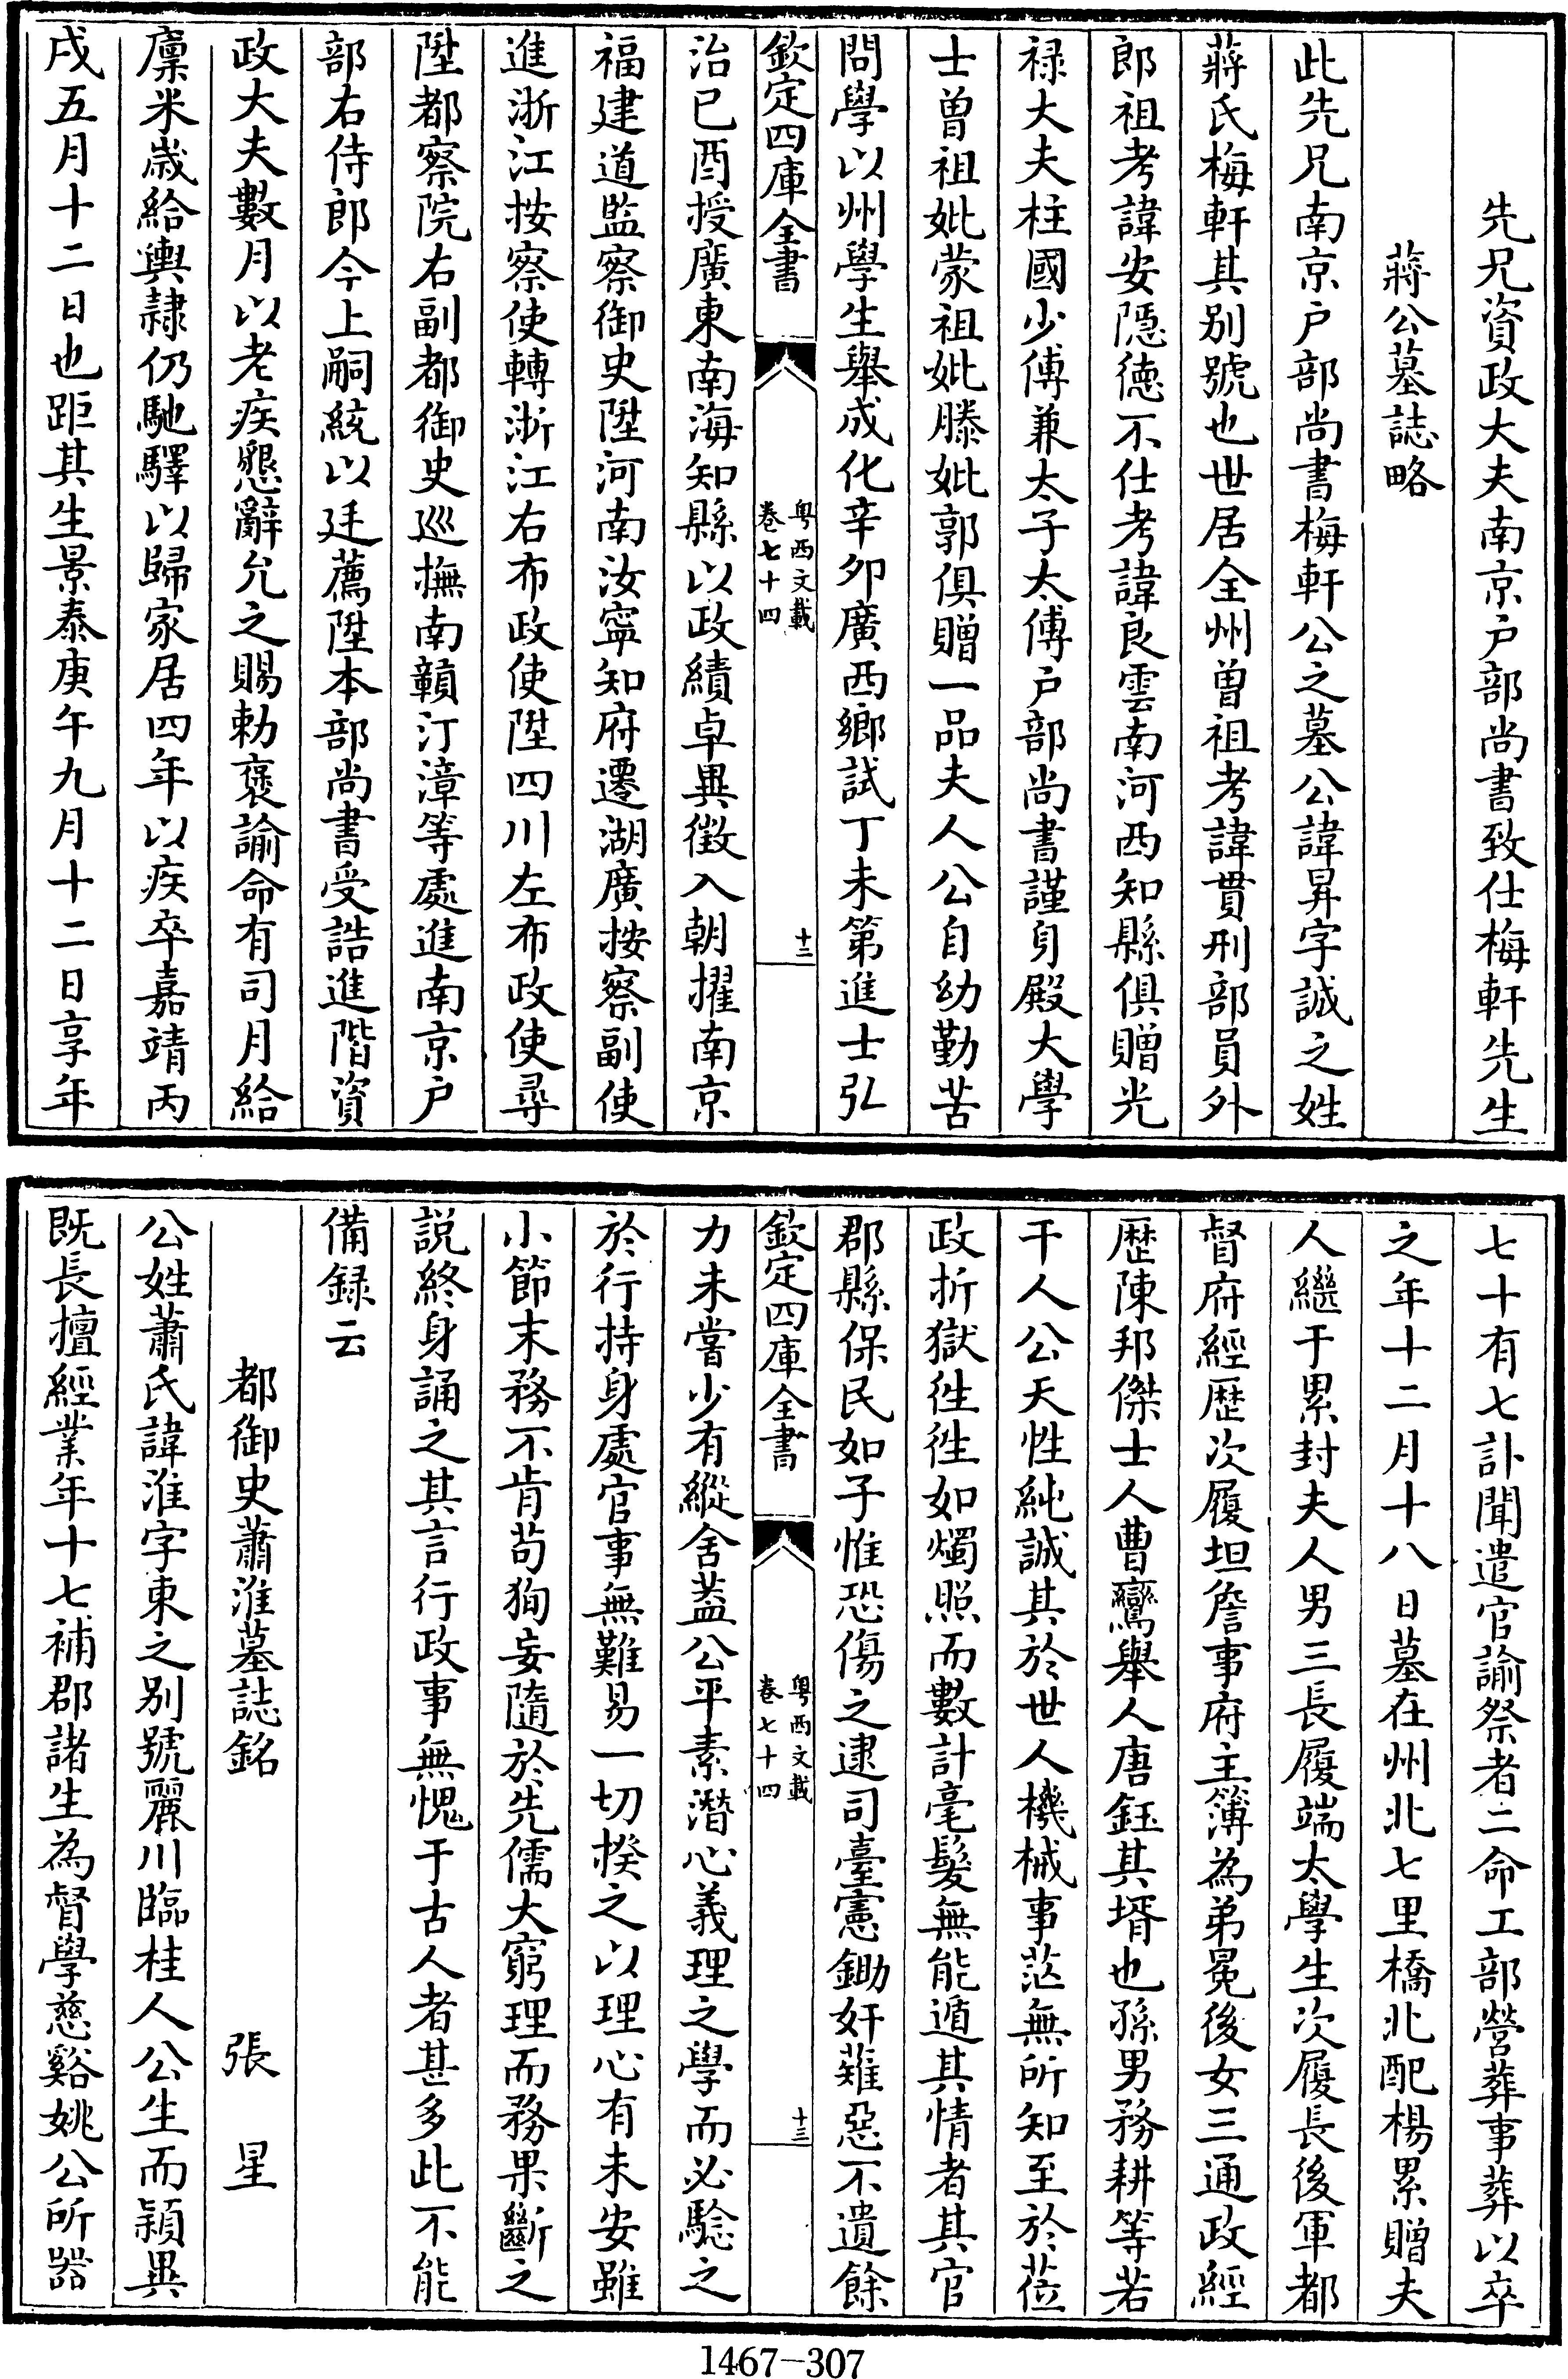 先兄資政大夫南京户部尚書致仕梅軒先生
蔣公墓誌略
此先兄南京户部尚書梅軒公之墓公諱昇字誠之姓
蔣氏梅軒其别號也世居全州曾祖考諱貫刑部員外
郎祖考諱安隱徳不仕考諱良雲南河西知縣俱贈光
禄大夫柱國少傅兼太子太傅户部尚書謹身殿大學
士曾祖妣蒙祖妣滕妣郭俱贈一品夫人公自幼勤苦
問學以州學生舉成化辛卯廣西鄉試丁未第進士弘
欽定四庫全書
粤西文載
卷七十四
十二
治已酉授廣東南海知縣以政績卓異徴入朝擢南京
福建道監察御史陞河南汝寧知府遷湖廣按察副使
進浙江按察使轉浙江右布政使陞四川左布政使尋
陞都察院右副都御史巡撫南贛汀漳等處進南京户
部右侍郎今上嗣統以廷薦陞本部尚書受誥進階資
政大夫數月以老疾懇辭允之賜勅褒諭命有司月給
廩米歲給輿隷仍馳驛以歸家居四年以疾卒嘉靖丙
戌五月十二日也距其生景泰庚午九月十二日享年
七十有七訃聞遣官諭祭者二命工部營葬事葬以卒
之年十二月十八日墓在州北七里橋北配楊累贈夫
人繼于累封夫人男三長履端太學生次履長後軍都
督府經歴次履坦詹事府主簿為弟冕後女三通政經
歴陳邦傑士人曹鸞舉人唐鈺其壻也孫男務耕等若
干人公天性純誠其於世人機械事茫無所知至於蒞
政折獄徃徃如燭照而數計毫髮無能遁其情者其官
郡縣保民如子惟恐傷之逮司臺憲鋤奸薙惡不遺餘
欽定四庫全書
粤西文載
卷七十四
十三
力未嘗少有縱舍葢公平素潛心義理之學而必騐之
於行持身處官事無難易一切揆之以理心有未安雖
小節末務不肯茍狥妄隨於先儒大窮理而務果斷之
説終身誦之其言行政事無愧于古人者甚多此不能
備録云
都御史蕭淮墓誌銘　張星
公姓蕭氏諱淮字東之别號麗川臨桂人公生而頴異
既長擅經業年十七補郡諸生為督學慈谿姚公所器
1467-307